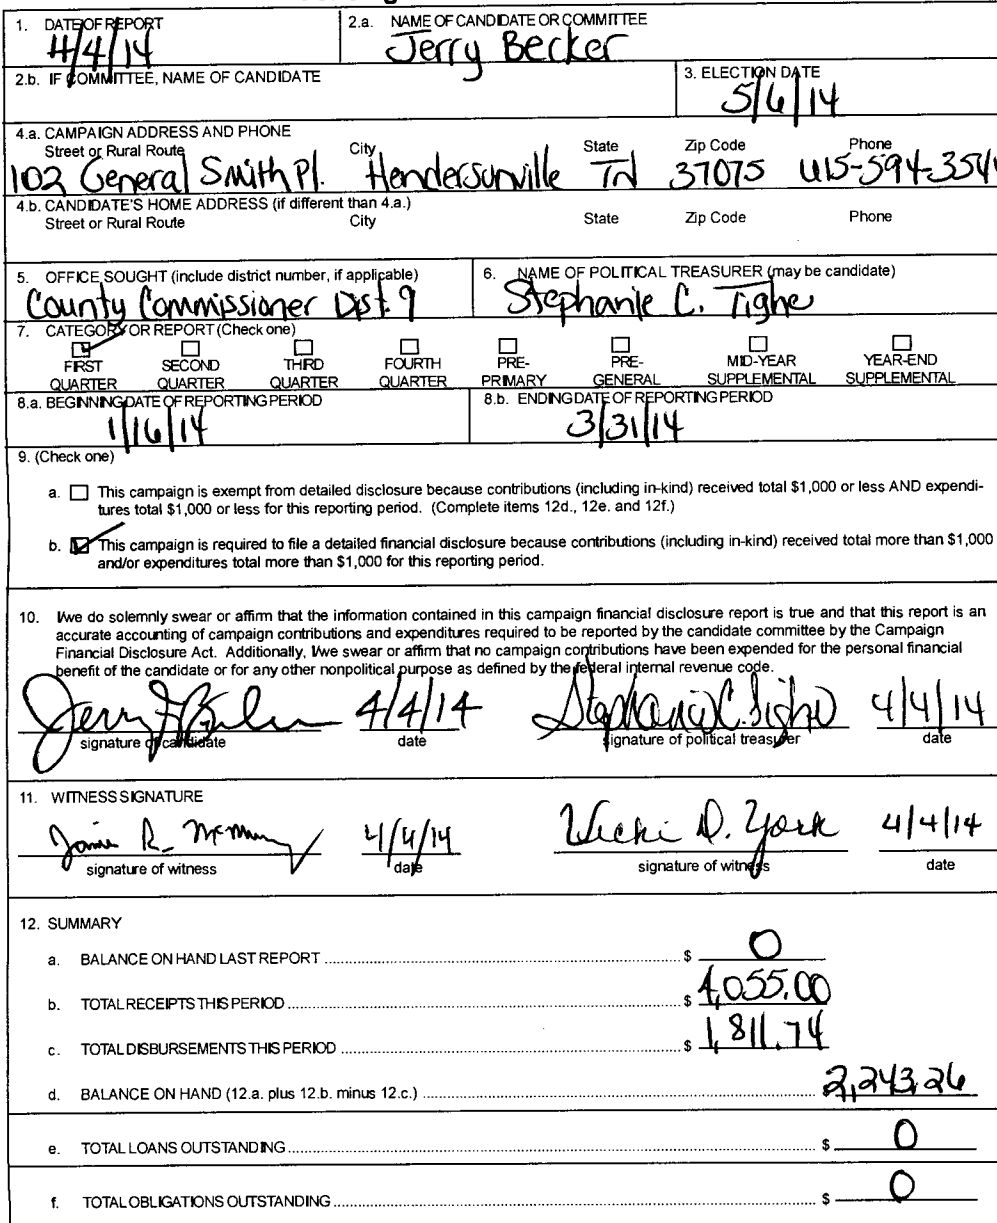 1. DATE OF REPORT
4/4/14
2.a. NAME OF CANDIDATE OR COMMITTEE
Jerry Becker
2.b. IF COMMITTEE, NAME OF CANDIDATE
3. ELECTION DATE
5/6/14
4.a. CAMPAIGN ADDRESS AND PHONE
Street or Rural Route City State Zip Code Phone
102 General Smith Pl. Hendersonville TN 37075 615-594-354
4.b. CANDIDATE'S HOME ADDRESS (if different than 4.a.)
Street or Rural Route City State Zip Code Phone
5. OFFICE SOUGHT (include district number, if applicable)
County Commissioner Dist. 9
6. NAME OF POLITICAL TREASURER (may be candidate)
Stephanie C. Tighe
7. CATEGORY OR REPORT (Check one)
FIRST QUARTER
SECOND QUARTER
THIRD QUARTER
FOURTH QUARTER
PRE-PRIMARY
PRE-GENERAL
MID-YEAR SUPPLEMENTAL
YEAR-END SUPPLEMENTAL
8.a. BEGINNING DATE OF REPORTING PERIOD
1/16/14
8.b. ENDING DATE OF REPORTING PERIOD
3/31/14
9. (Check one)
a. This campaign is exempt from detailed disclosure because contributions (including in-kind) received total $1,000 or less AND expendi-
tures total $1,000 or less for this reporting period. (Complete items 12d., 12e. and 12f.)
b. This campaign is required to file a detailed financial disclosure because contributions (including in-kind) received total more than $1,000
and/or expenditures total more than $1,000 for this reporting period.
10. I/we do solemnly swear or affirm that the information contained in this campaign financial disclosure report is true and that this report is an
accurate accounting of campaign contributions and expenditures required to be reported by the candidate committee by the Campaign
Financial Disclosure Act. Additionally, I/we swear or affirm that no campaign contributions have been expended for the personal financial
benefit of the candidate or for any other nonpolitical purpose as defined by the federal internal revenue code.
Jerry 4/4/14 Stephanie C. Tighe 4/4/14
signature of candidate date signature of political treasurer date
11. WITNESS SIGNATURE
R. 4/4/14 Vicki D. York 4/4/14
signature of witness date signature of witness date
12. SUMMARY
a. BALANCE ON HAND LAST REPORT $ 0
b. TOTAL RECEIPTS THIS PERIOD $ 4,055.00
c. TOTAL DISBURSEMENTS THIS PERIOD $ 1,811.74
d. BALANCE ON HAND (12.a. plus 12.b. minus 12.c.) 2,243.26
e. TOTAL LOANS OUTSTANDING $ 0
f. TOTAL OBLIGATIONS OUTSTANDING $ 0